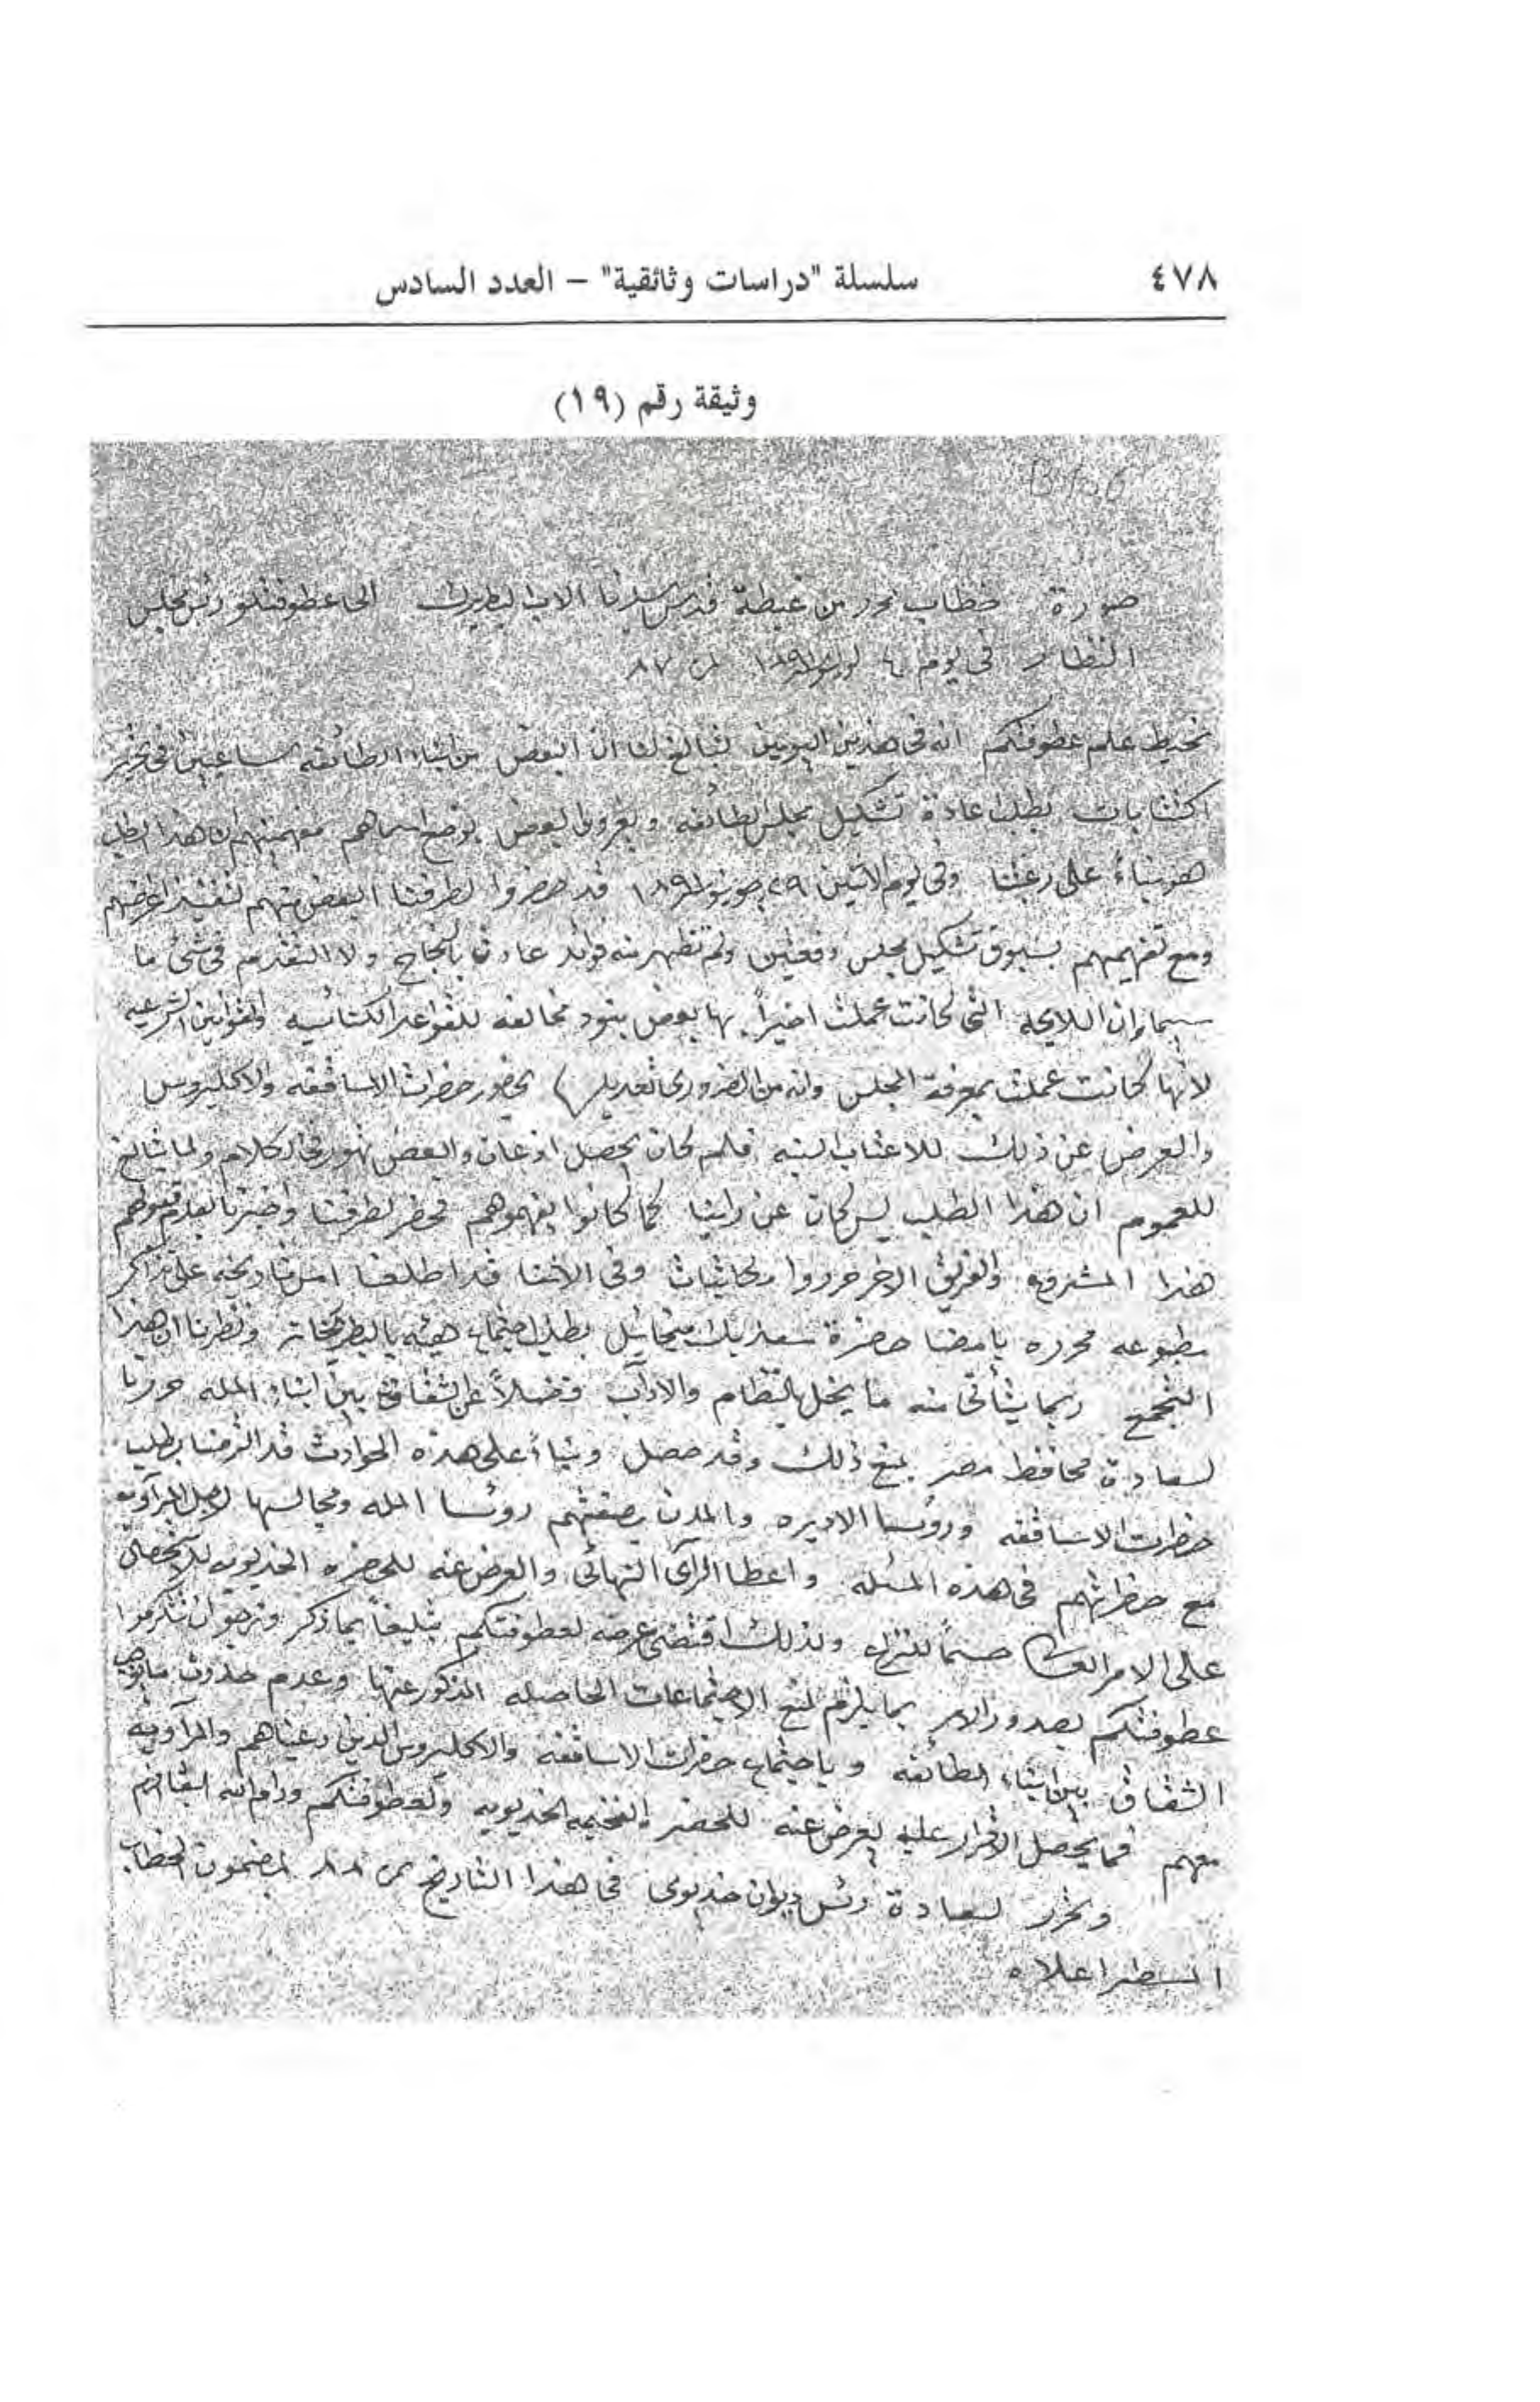 ٤٧٨
سلسلة "دراسات وثائقية" – العدد السادس
وثيقة رقم (١٩)
صورة خطاب محرر من غبطة قدس سيدنا الاب البطريرك الى عطوفتلو رئس مجلس
النظار فى يوم ٤ يوليو ١٨٩١ نمرة ٨٧
نحيط علم عطوفتكم انه فى هذين اليومين تبالغ لنا ان البعض من ابناء الطائفه ساعيين فى تحرير
اكتتابات بطلب اعادة تشكيل مجلس الطائفه ويغروا البعض بوضع اسماهم مفهمينهم ان هذا الطلب
هو بناءً على رغبتنا وفى يوم الاثنين ٢٩ يونيو ١٨٩١ قد حضروا لطرفنا البعض منهم لتنفيذ اغرضهم
ومع تفهيمهم بسبوق تشكيل مجلس دفعتين ولم تظهر منه فوائد عادت بالنجاح ولا التقدم فى شئ ما
سيما وان اللايحه التى كانت عملت اخيراً بها بعض بنود مخالفه للقواعد الكنائسيه والقوانين الشرعيه
لانها كانت عملت بمعرفة المجلس وانه من الضرورى تعديلها بحضور حضرات الاساقفه والاكليروس
والعرض عن ذلك للاعتاب السنيه فلم كان يحصل اذعان والبعض تهور فى الكلام ولما تبالغ
للعموم ان هذا الطلب ليس كان عن راينا كما كانوا يفهموهم فحضر لطرفنا واخبرنا بعدم قبولهم
هذا المشروع والفريق الاخر حرروا مكاتبات وفى الاثنا قد اطلعنا امس تاريخه على تذاكر
مطبوعه محرره بامضا حضرة سعد بك ميخائيل بطلب اجتماع هيئه بالبطركخانه ونظرنا ان هذا
التجمع ربما يتأتى منه ما يخل بالنظام والاداب فضلاً عن الشقاق بين ابناء المله حررنا
لسعادة محافظ مصر بمنع ذلك وقد حصل وبناءً على هذه الحوادث قد التزمنا بطلب
حضرات الاساقفه ورؤسا الاديره والمدن بصفتهم رؤسا المله ومجالسها لاجل المداوله
مع حضراتهم فى هذه المسئله واعطا الرأى النهائى والعرض عنه للحضره الخديويه للاستحصال
على الامر العالى حسماً للنزاع ولذلك اقتضى عرضه لعطوفتكم تبليغاً بما ذكر ونرجو ان تتكرموا
عطوفتكم بصدور الامر بما يلزم لمنع الاجتماعات الحاصله المذكور عنها وعدم حدوث ما يوجب
الشقاق بين ابناء الطائفه وباجتماع حضرات الاساقفه والاكليروس الذين دعيناهم والمداوله
معهم فما يحصل الاقرار عليه يعرض عنه للحضره الفخيمه الخديويه ولعطوفتكم ودام الله ابقاكم
وتحرر لسعادة رئس ديوان خديوى فى هذا التاريخ نمرة ٨٨ بمضمون الخطاب
المسطر اعلاه